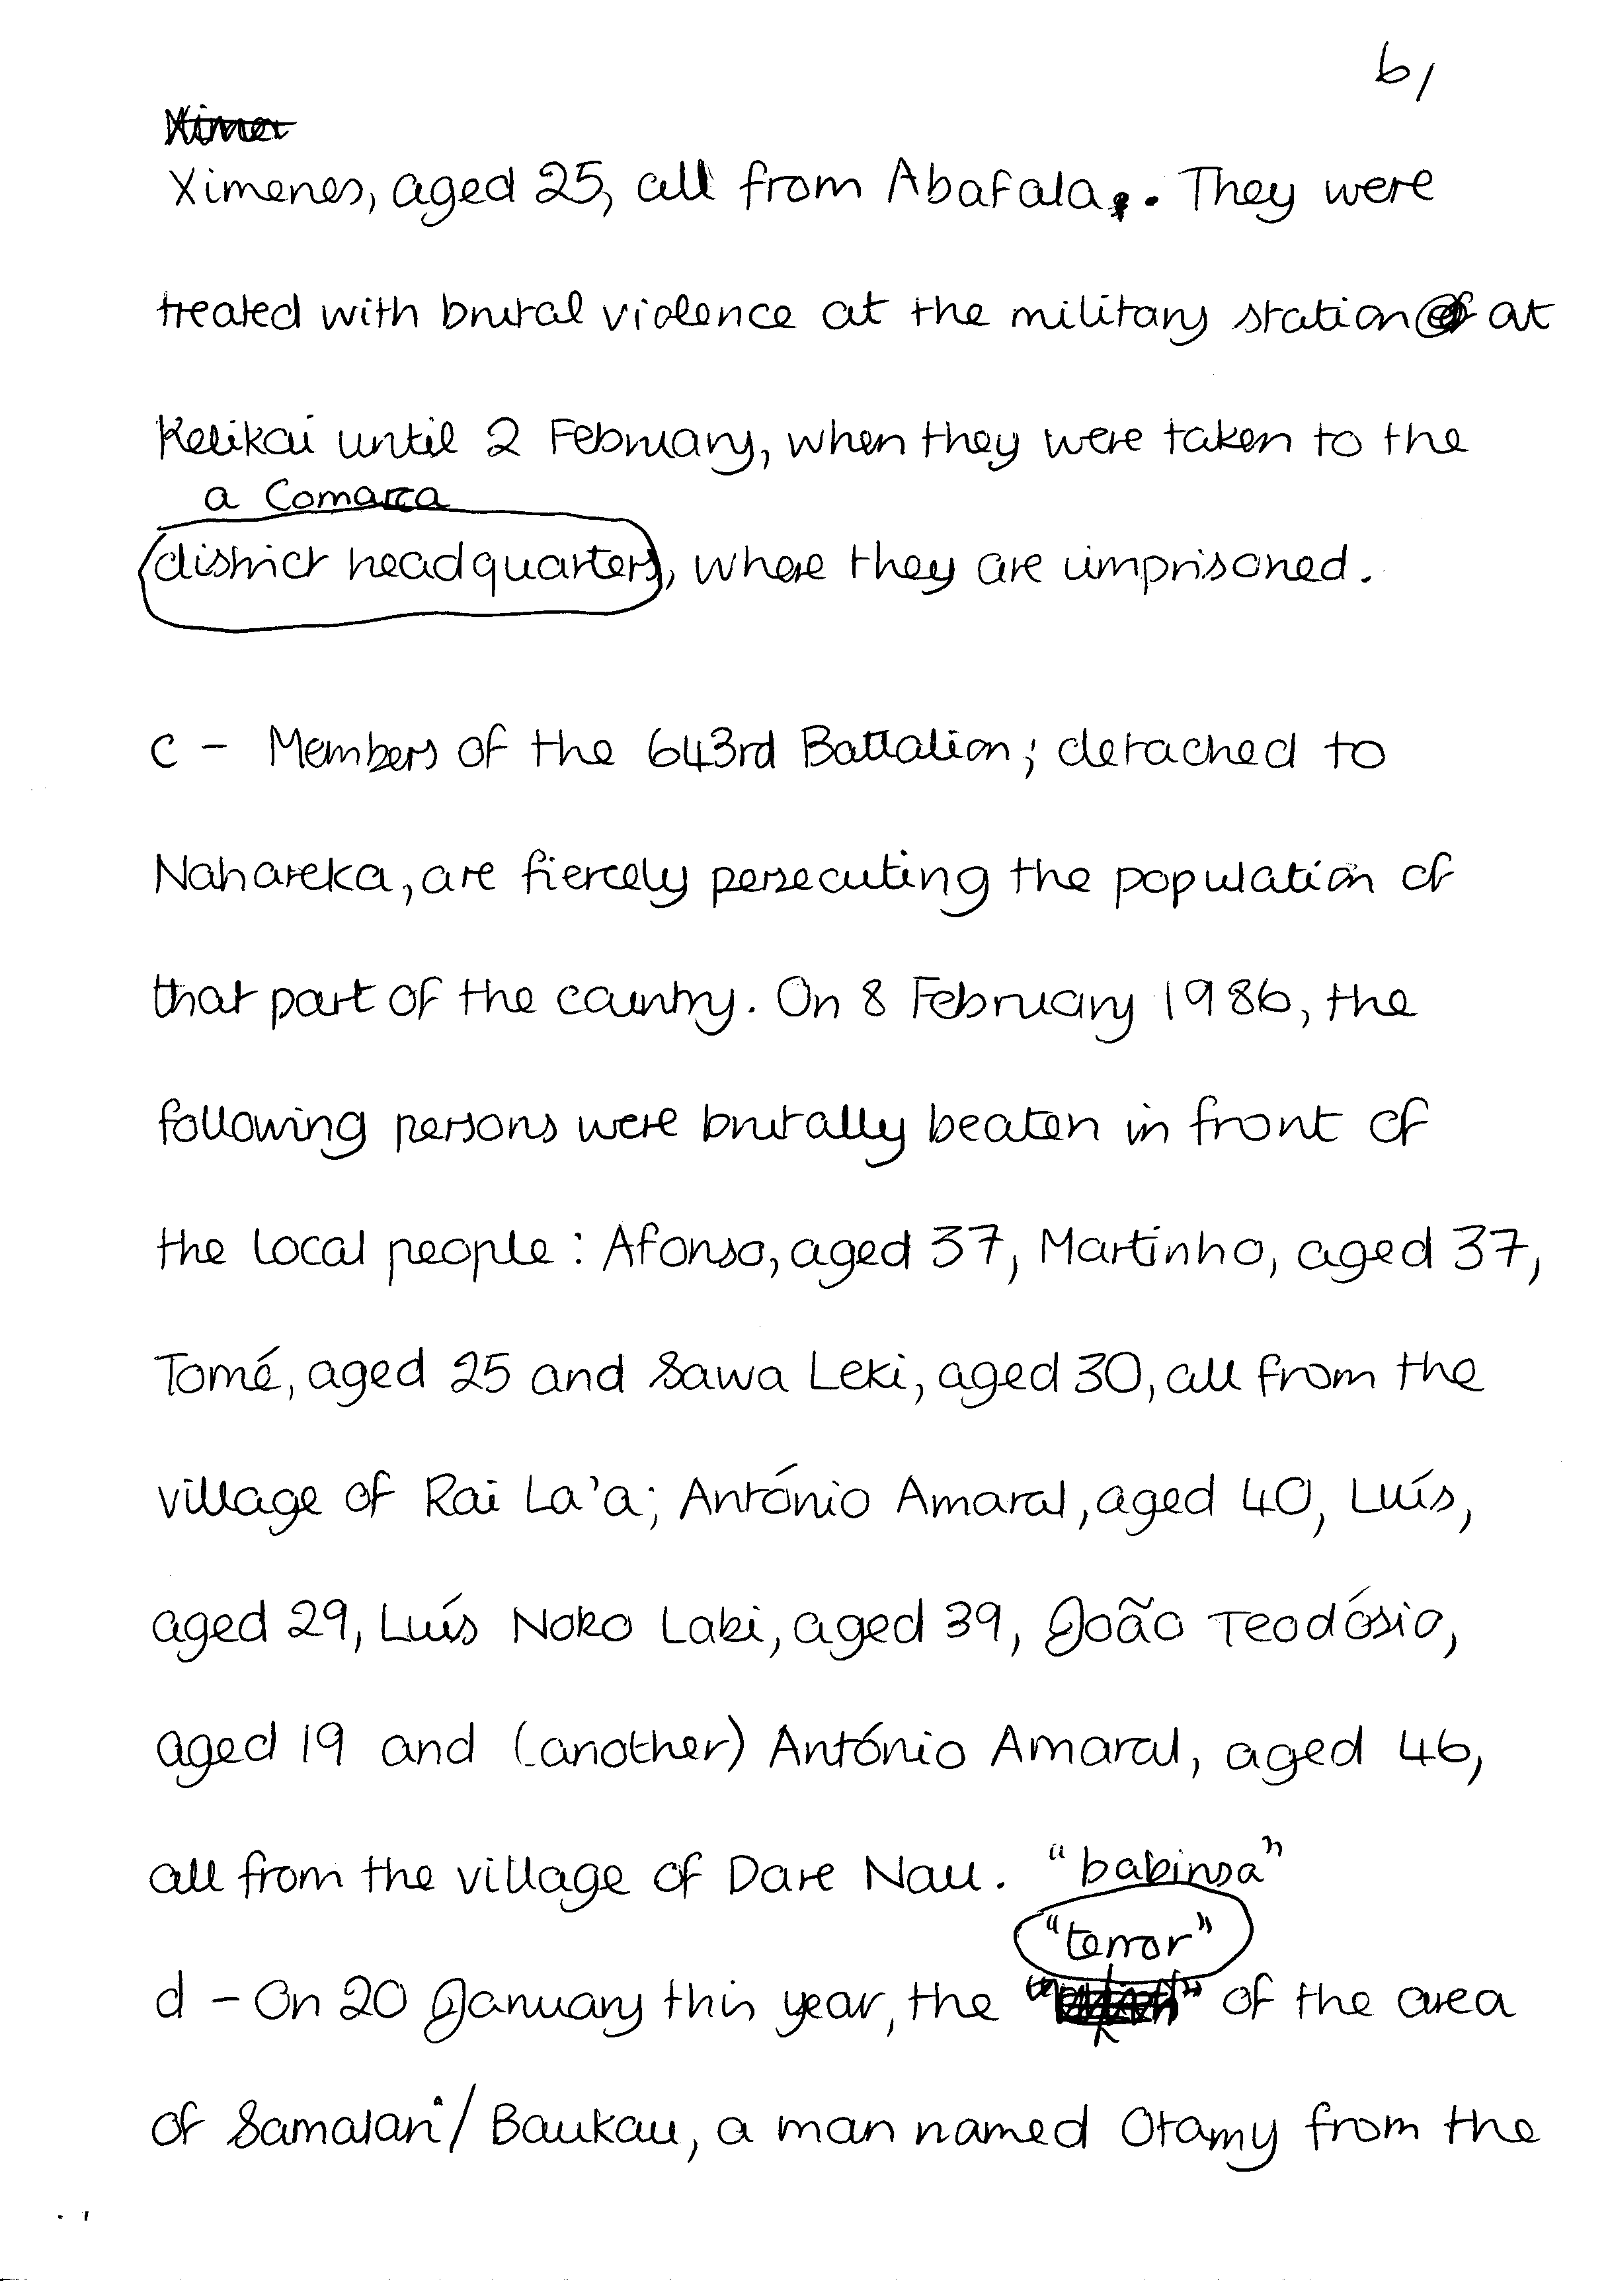 6/
Ximenes, aged 25, all from Abafala. They were
treated with brutal violence at the military station at
Kelikai until 2 February, when they were taken to the
a Comarca
district headquarters, where they are imprisoned.
c - Members of the 643rd Battalion; detached to
Nahareka, are fiercely persecuting the population of
that part of the country. On 8 February 1986, the
following persons were brutally beaten in front of
the local people: Afonso, aged 37, Martinho, aged 37,
Tomé, aged 25 and Sawa Leki, aged 30, all from the
village of Rai La'a; António Amaral, aged 40, Luís,
aged 29, Luís Noko Laki, aged 39, João Teodósio,
aged 19 and (another) António Amaral, aged 46,
all from the village of Dare Nau. "babinsa"
"terror"
d - On 20 January this year, the of the area
of Samalari/Baukau, a man named Otamy from the